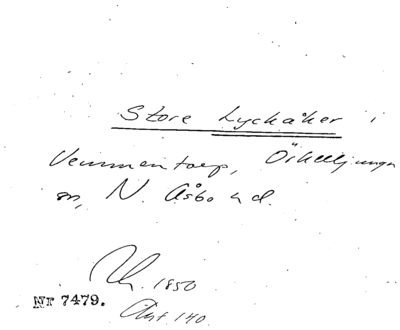 Store Lyckåker i
Vemmentorp, Örkelljunga
sn, N. Åsbo hd.
1850
Nr 7479.
Akt 140